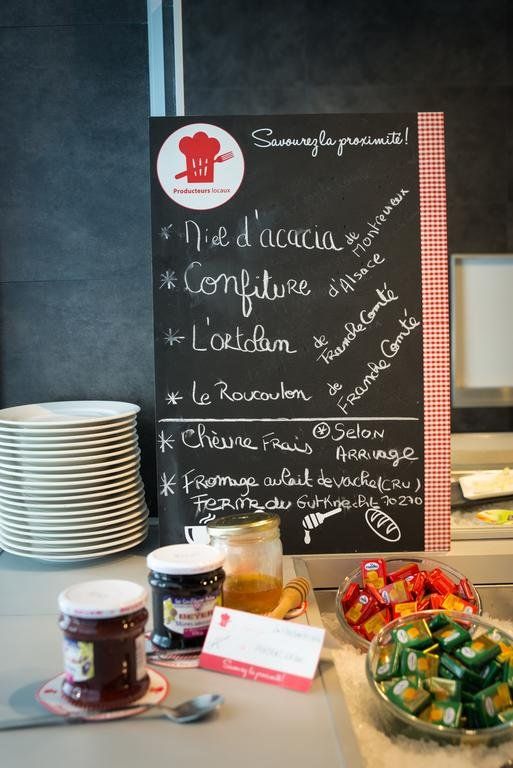 Savourez la proximité!
Producteurs locaux
* Miel d'acacia de Montreveux
* Confiture d'Alsace
* L'ortolan de Franche Comté
* Le Roucoulon de Franche Comté
* Chèvre Frais * Selon
Arrivage
* Fromage au lait de vache (CRU)
Ferme du 70270
BEYER
Savourez la proximité!